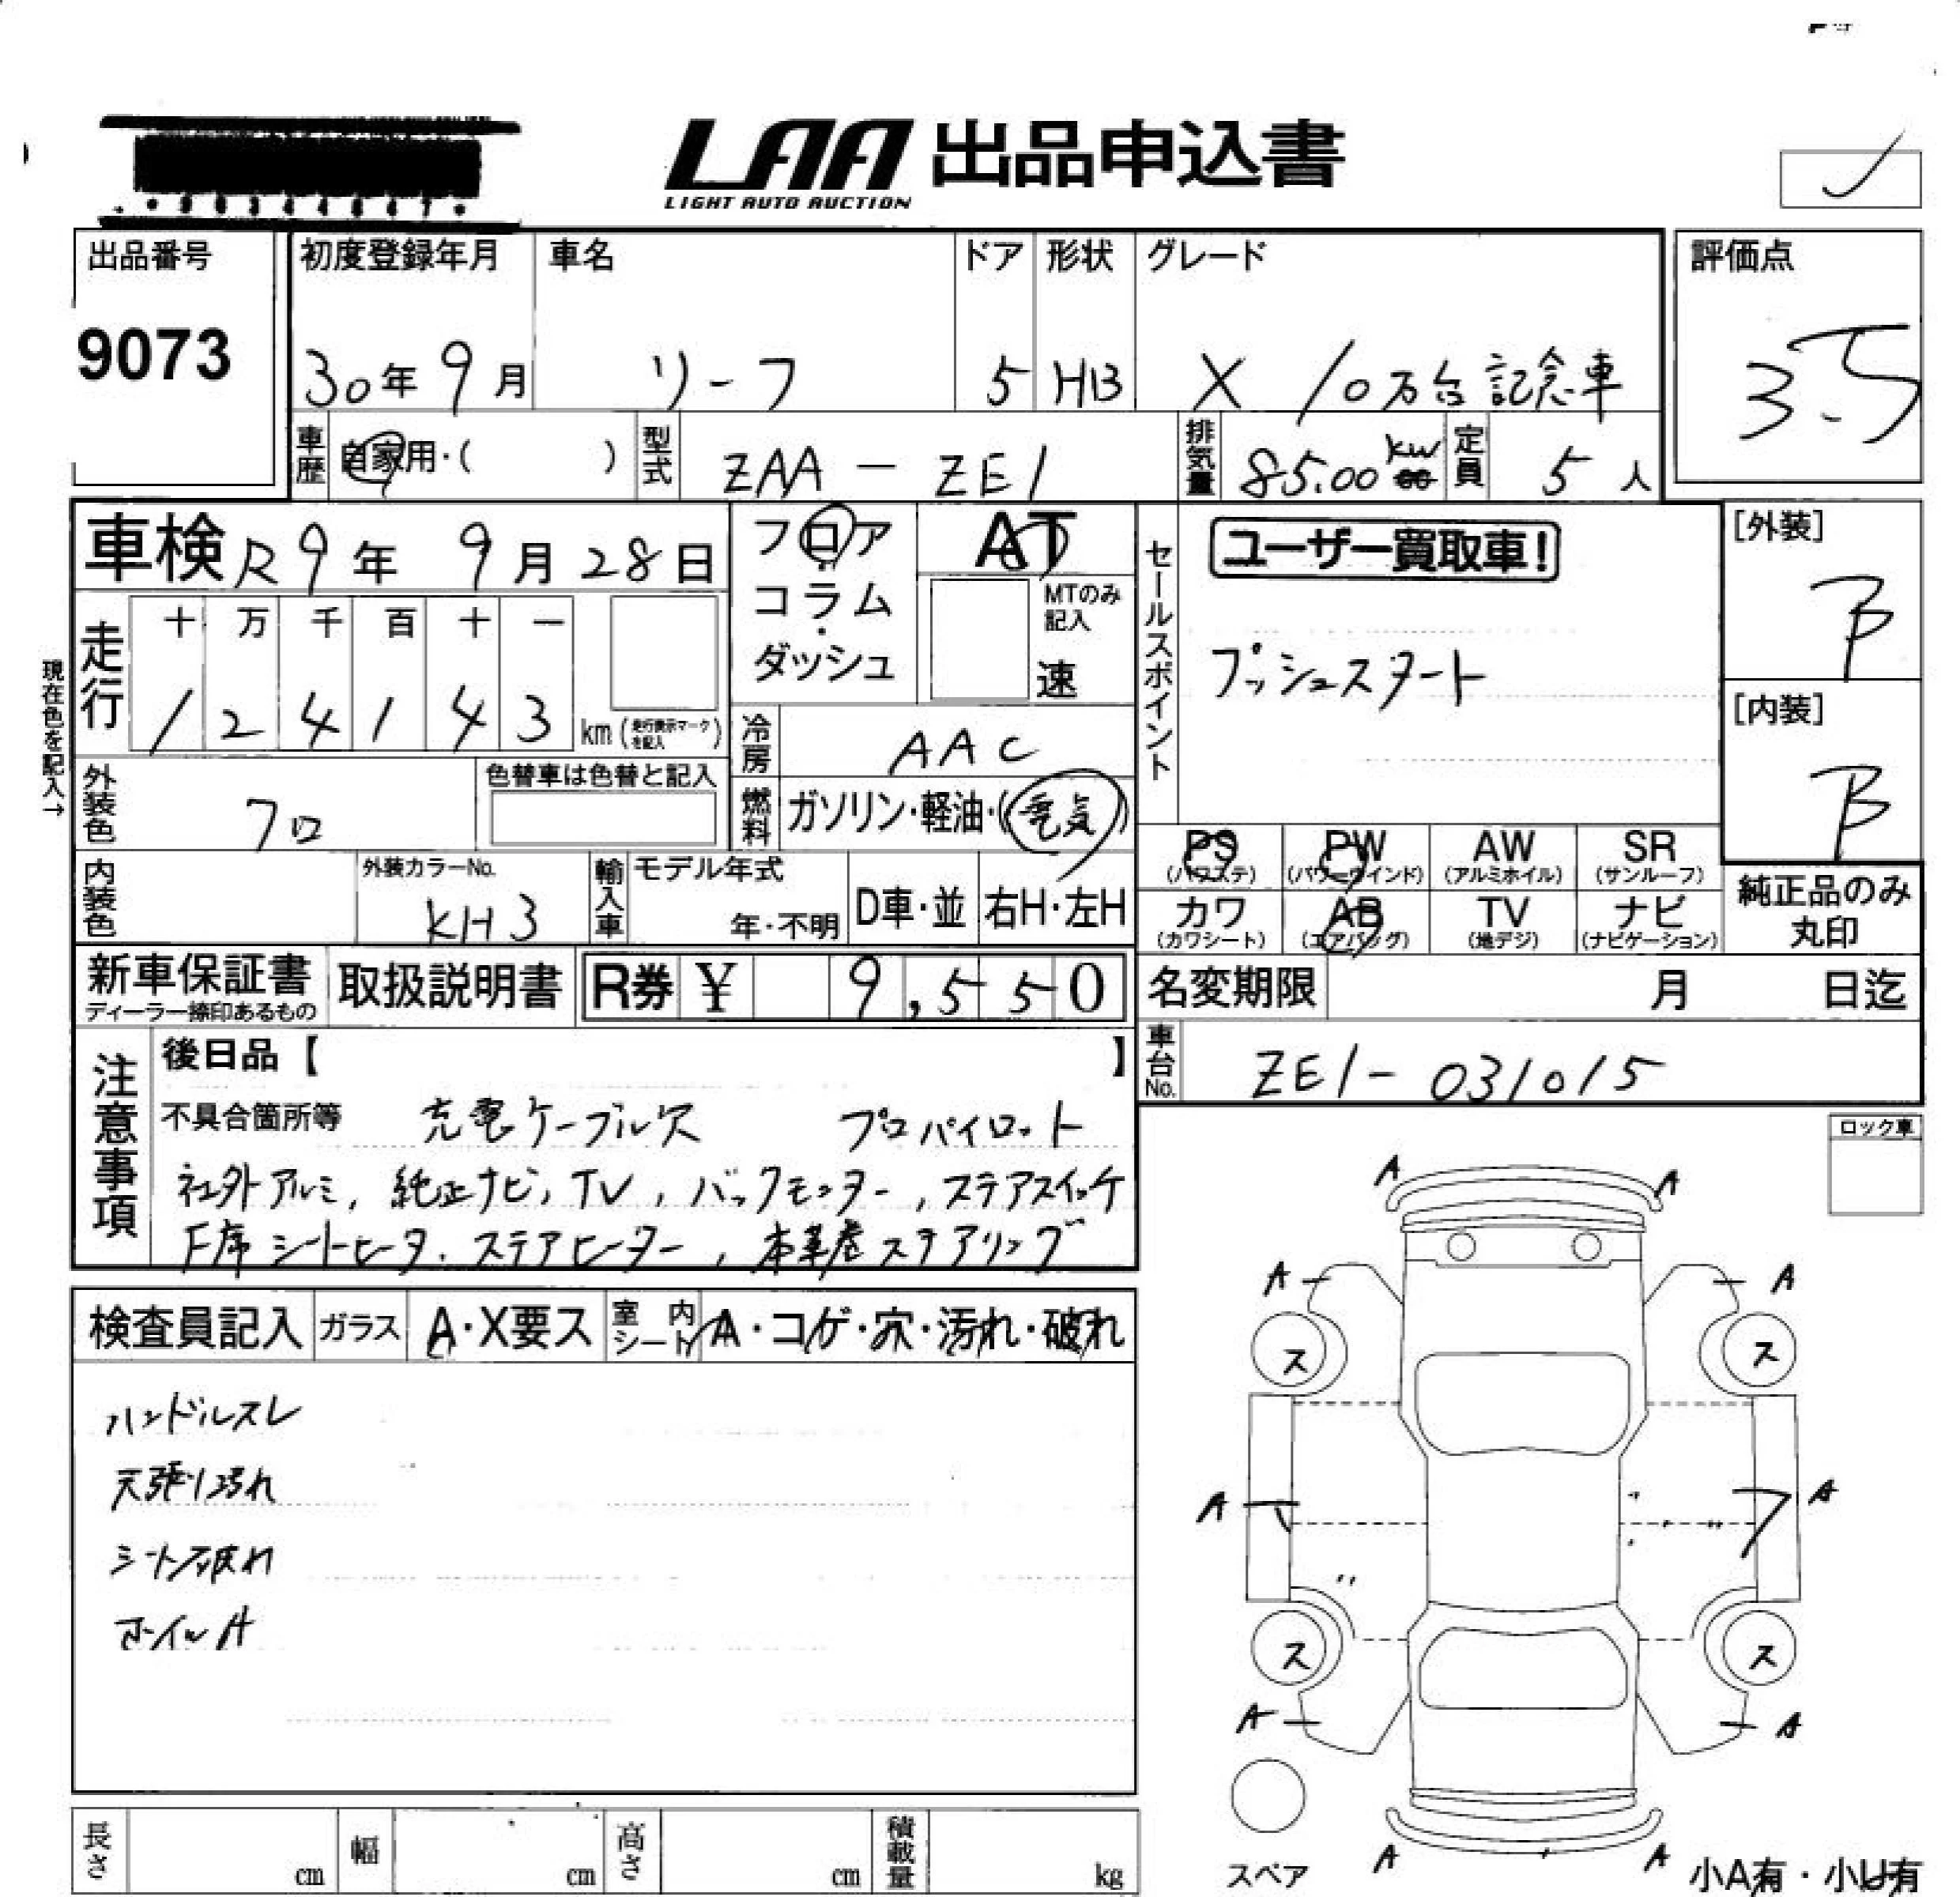 LAA 出品申込書
LIGHT AUTO AUCTION
出品番号 初度登録年月 車名 ドア 形状 グレード 評価点
9073 30年 9月 リーフ 5 HB X 10万台記念車 3.5
車歴 自家用・( ) 型式 ZAA-ZE1 排気量 85.00 kw cc 定員 5人
車検 R9年 9月 28日 フロア AT セールスポイント ユーザー買取車! [外装]
B
コラム・ MTのみ記入
ダッシュ 速
プッシュスタート
現在色を記入→
走行 十 万 千 百 十 一
1 2 4 1 4 3 km (走行表示マークを記入)
冷房 AAC
[内装]
B
外装色 クロ 色替車は色替と記入 燃料 ガソリン・軽油・(電気)
PS PW AW SR
(パワステ) (パワーウインド) (アルミホイル) (サンルーフ)
内装色 外装カラーNo. KH3 輸入車 モデル年式 年・不明 D車・並 右H・左H
カワ AB TV ナビ
(カワシート) (エアバッグ) (地デジ) (ナビゲーション)
純正品のみ
丸印
新車保証書 取扱説明書 R券 ¥ 9,550 名変期限 月 日迄
ディーラー捺印あるもの
注意事項 後日品【 】 車台No. ZE1-031015
不具合箇所等 充電ケーブル欠 プロパイロット
社外アルミ, 純正ナビ, TV, バックモニター, ステアスイッチ
F席シートヒータ. ステアヒーター, 本革巻ステアリング
ロック車
検査員記入 ガラス A・X要ス 室内シート A・コゲ・穴・汚れ・破れ
ハンドルスレ
天張り汚れ
シート破れ
ホイルA
A A
A A
ス ス
A A
ス ス
A A
A A
スペア 小A有・小U有
長さ cm 幅 cm 高さ cm 積載量 kg